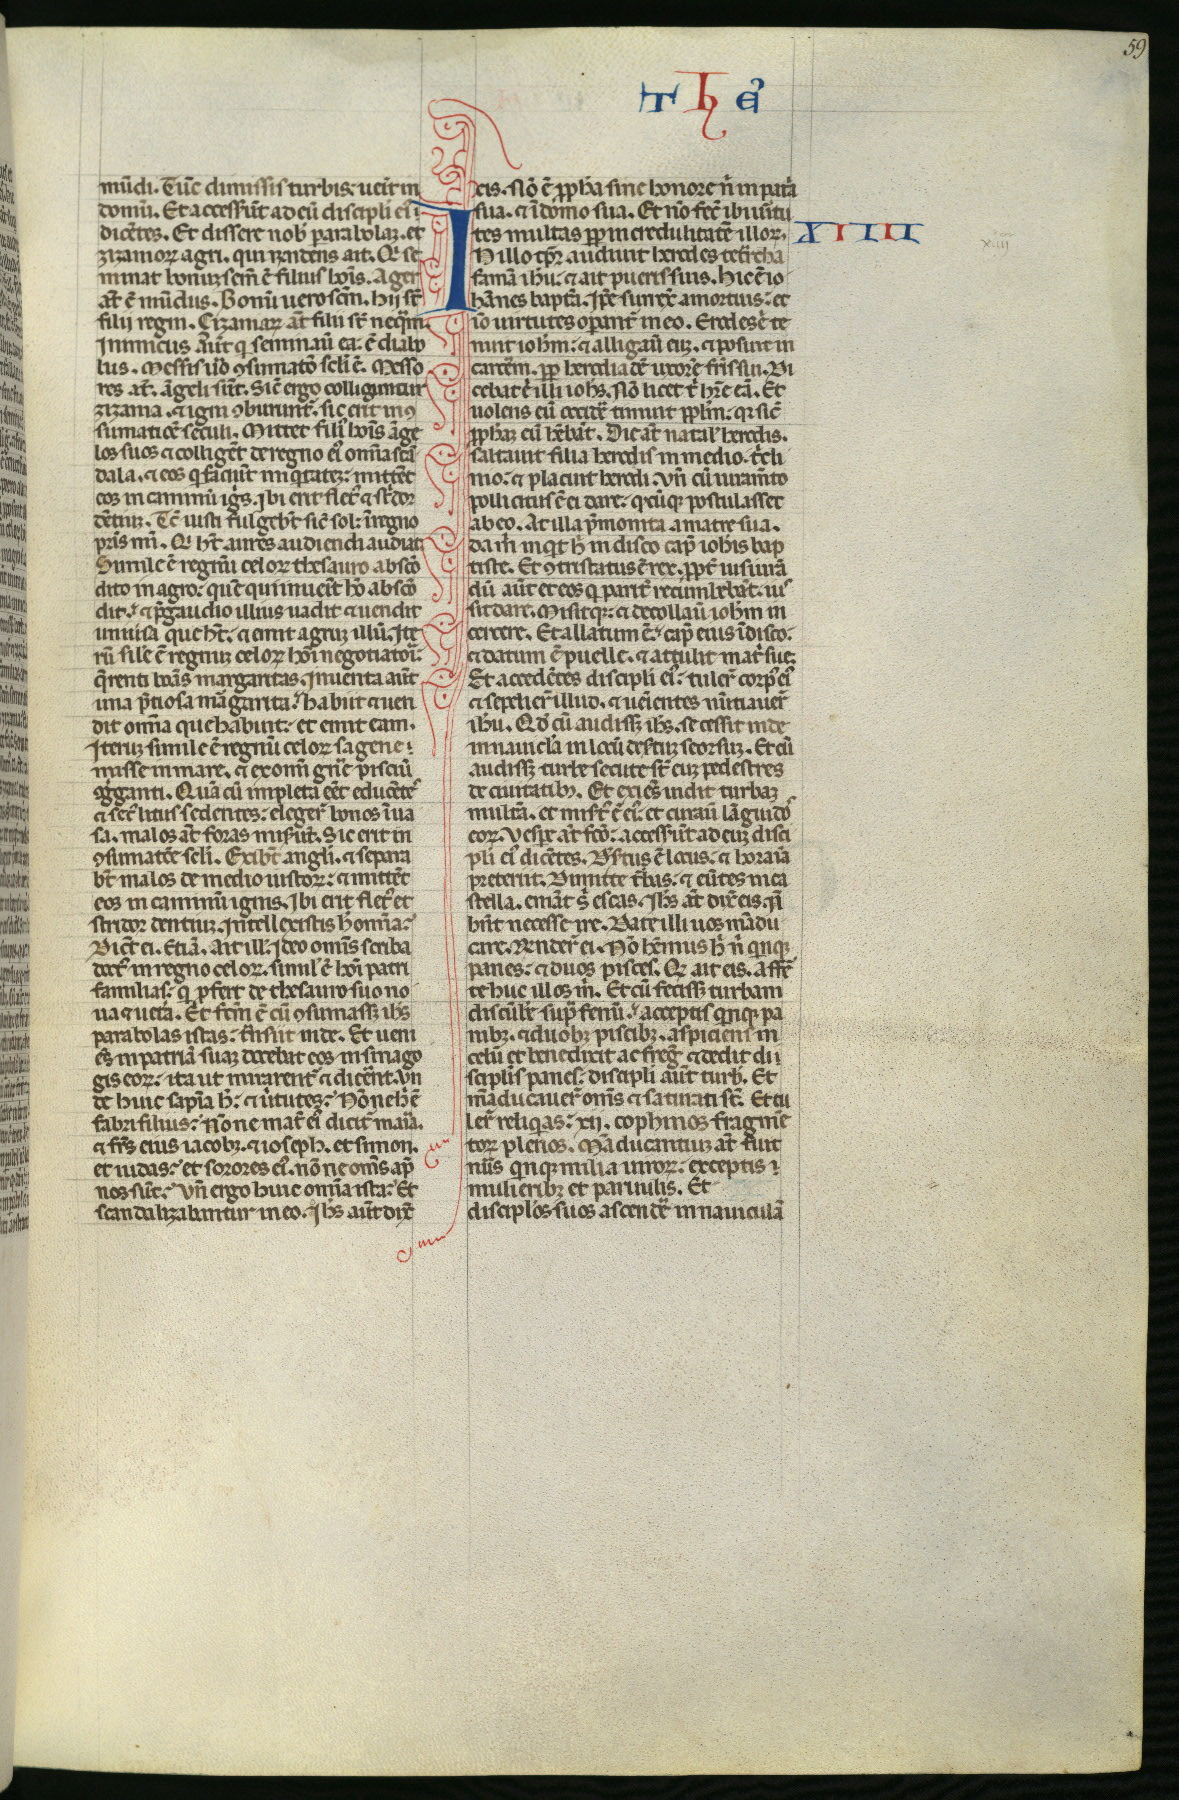 59
T h E᷒
mūdi. Tūc dimissis turbis: ueīt in
domū. Et accesserūt ad eū discipli eiꝰ
dicētes. Et dissere nob̄ parabolaꝫ. et
zizanioꝝ agri. qui rn̄dens ait. Q̄ se
minat bonuꝫ sem̄ ē filius hoīs. Ager
aūt ē mūdus. Bonū uero sem̄. hij st̄
filij regni. Cizaniaꝝ āt filii st̄ neq̄m.
Inimicus aūt q̇ seminauit ea: ē diabo
lus. Messis ū̇o ꝯsūmatō sc̄li ē. Messo
res āt. āgeli sūt. Sic̄ ergo colligūtur
zizania. ⁊ igni ꝯburunt᷑. sic erit in ꝯ
sumatiōe seculi. Mittet filiꝰ hoīs āge
los suos ⁊ colligēt de regno eiꝰ omīa scā
dala. ⁊ eos q̇ faciūt iniq̇tatē: mittēt
eos in caminū igīs. Ibi erit fletꝰ ⁊ st̄dor
dētiuꝫ. Tc̄ iusti fulgebt̄ sic̄ sol: ī regno
pr̄is sui. Q̇ ht̄ aures audiendi audiat.
Simile ē regnū celoꝝ thesauro abscō
dito in agro: quē qui inuenit hō abscō
dit. ⁊ p̄ gaudio illius uadit ⁊ uendit
uniuīsa que ht̄. ⁊ emit agruꝫ illū. Ite
rū sił̄e ē regnuꝫ celoꝝ hoī negotiatoī.
q̄renti boās margaritas. Inuenta aūt
una p̄tiosa margarita: habiit ⁊ uen
dit omīa que habuit: et emit eam.
Iteruꝫ simile ē regnū celoꝝ sagene:
misse in mare. ⁊ ex omī gn̄e pisciū
ꝯgganti. Quā cū impleta eēt educētēs
⁊ sec̄ litus sedentes: elegerūt bonos ī ua
sa. malos āt foras misēūt. Sic erit in
ꝯsumatiōe sc̄li. Exibt̄ angli. ⁊ separa
bt̄ malos de medio iustoꝝ: ⁊ mittēt
eos in caminū ignis. Ibi erit fletꝰ et
stridor dentiuꝫ. Intellexistis h̄ omīa:
Dicūt ei. Etiā. Ait illīs. Ideo omīs scriba
doctꝰ in regno celoꝝ. simił ē hoī patri
familias: q̇ ꝓfert de thesauro suo no
ua ⁊ uetā. Et fcm̄ ē cū ꝯsumasꝫ ihs̄
parabolas istas: trāsiit inde. Et ueni
ēs in patriā suaꝫ docebat eos in sinago
gis eoꝝ: ita ut mirarent᷑ ⁊ dicēnt. Vn̄
de huic sapīa h̄: ⁊ ūtutes: Nō ne hē
fabri filius: Nō ne matꝰ eiꝰ dicit᷑ maria.
⁊ fr̄s eius iacobꝫ. ⁊ ioseph. et simon.
et iudas: et sorores eiꝰ. nō ne om̄s apꝰ
nos sūt: Vn̄ ergo huic omīa ista: Et
scandalizabantur in eo. Ihs̄ aūt dix̄
eis. Nō ē ꝓpha sine honore n̄ in patia
sua. ⁊ ī domo sua. Et nō fec̄ ibi uītu
tes multas ꝓp̄ incredulitatē illoꝝ.
XIIII
N illo tp̄r audiuit herodes tetrcha
famā ihu: ⁊ ait pueris suis. Hic ē io
hānes bapt̄a. Ip̄e surrex̄ a mortuis: et
iō uirtutes opant᷑ in eo. Herodes ē te
nuit ioh̄m: ⁊ alligauū euꝫ. ⁊ posuit in
carcēm. ꝓp̄ herodiadē uxorē fr̄is sui. Di
cebat ē illi iohs̄. Nō licet t̄ hr̄e eā. Et
uolens eū occidē timuit ppl̄m. qꝛ sic̄
ꝓphaꝫ eū hēbāt. Die āt natał herodis.
saltauit filia herodis in medio. t̄cli
nio: ⁊ placuit herodi: Vn̄ cū iuramēto
pollicitus ē ei dare: q̄cūqꝫ postulasset
ab eo. At illa p̄monita a matre sua.
da m̄ inq̇t h̄ in disco cap̄ iohis bap
tiste. Et ꝯtristatus ē rex. ꝓpt̄ iusiurā
dū aūt et eos q̇ parit᷑ recumbebāt. iuꝰ
sit dare. Misitqꝫ: ⁊ decollauū ioh̄m in
cercere. Et allatum ē. cap̄ eius ī disco:
⁊ datum ē puelle. ⁊ attulit matī sue.
Et accedētes discipli eiꝰ: tuler̄ corpꝰ eiꝰ
⁊ sepelier̄ illud. ⁊ ueīentes nūtiauer̄
ihu. Qd̄ cū audissꝫ ihs̄. secessit inde
in nauicl̄a in locū desertuꝫ seorsuꝫ. Et cū
audissꝫ turbe secute st̄ euꝫ pedestres
de ciuitatibꝫ. Et exiēs uidit turbaꝫ
multā. et misꝰt̄ ē eiꝰ: et curauū lāguidōs
eoꝝ. Vesꝑe āt fc̄o: accessūt ad euꝫ disci
pli eiꝰ dicētes. Dsꝰtus ē locus: ⁊ hora iā
preterit. Dimitte t̄bas: ⁊ eūtes in ca
stella. emāt s̄ escas. Ihs̄ āt dix̄ eis. n̄
hn̄t necesse ire. Date illi uos mādu
care. Rn̄der̄ ei. Nō hēmus h̄ n̄ q̇nqꝫ
panes: ⁊ duos pisces. Q̇ ait eis. Affer̄
te huc illos m̄. Et cū fecissꝫ turbam
discūbē suꝑ fenū: acceptis q̇nqꝫ pa
nibꝫ. ⁊ duobꝫ piscibꝫ. aspiciens in
celū et benedixit ac fregꝰ ⁊ dedit di
sciplis panes: discipli aūt turb. Et
māducauer̄ om̄s ⁊ saturati st̄. Et tu
ler̄ reliq̇as: xij. cophinos fragmē
torꝫ plenos. Māducantiuꝫ āt fuit
nūs q̇nqꝫ milia uiroꝝ: exceptis:
mulieribꝫ et paruulis. Et
disciplos suos ascendē in nauiculā